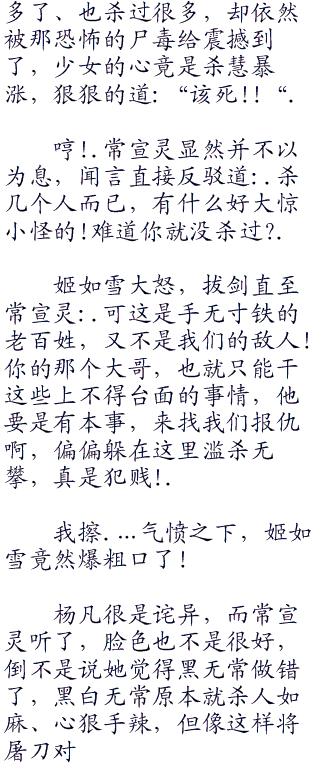 多了、也杀过很多，却依然
被那恐怖的尸毒给震撼到
了，少女的心竟是杀慧暴
涨，狠狠的道：“该死!！“.
哼!.常宣灵显然并不以
为息，闻言直接反驳道：.杀
几个人而已，有什么好大惊
小怪的!难道你就没杀过?.
姬如雪大怒，拔剑直至
常宣灵：.可这是手无寸铁的
老百姓，又不是我们的敌人!
你的那个大哥，也就只能干
这些上不得台面的事情，他
要是有本事，来找我们报仇
啊，偏偏躲在这里滥杀无
攀，真是犯贱!.
我擦.…气愤之下，姬如
雪竟然爆粗口了!
杨凡很是诧异，而常宣
灵听了，脸色也不是很好，
倒不是说她觉得黑无常做错
了，黑白无常原本就杀人如
麻、心狠手辣，但像这样将
屠刀对